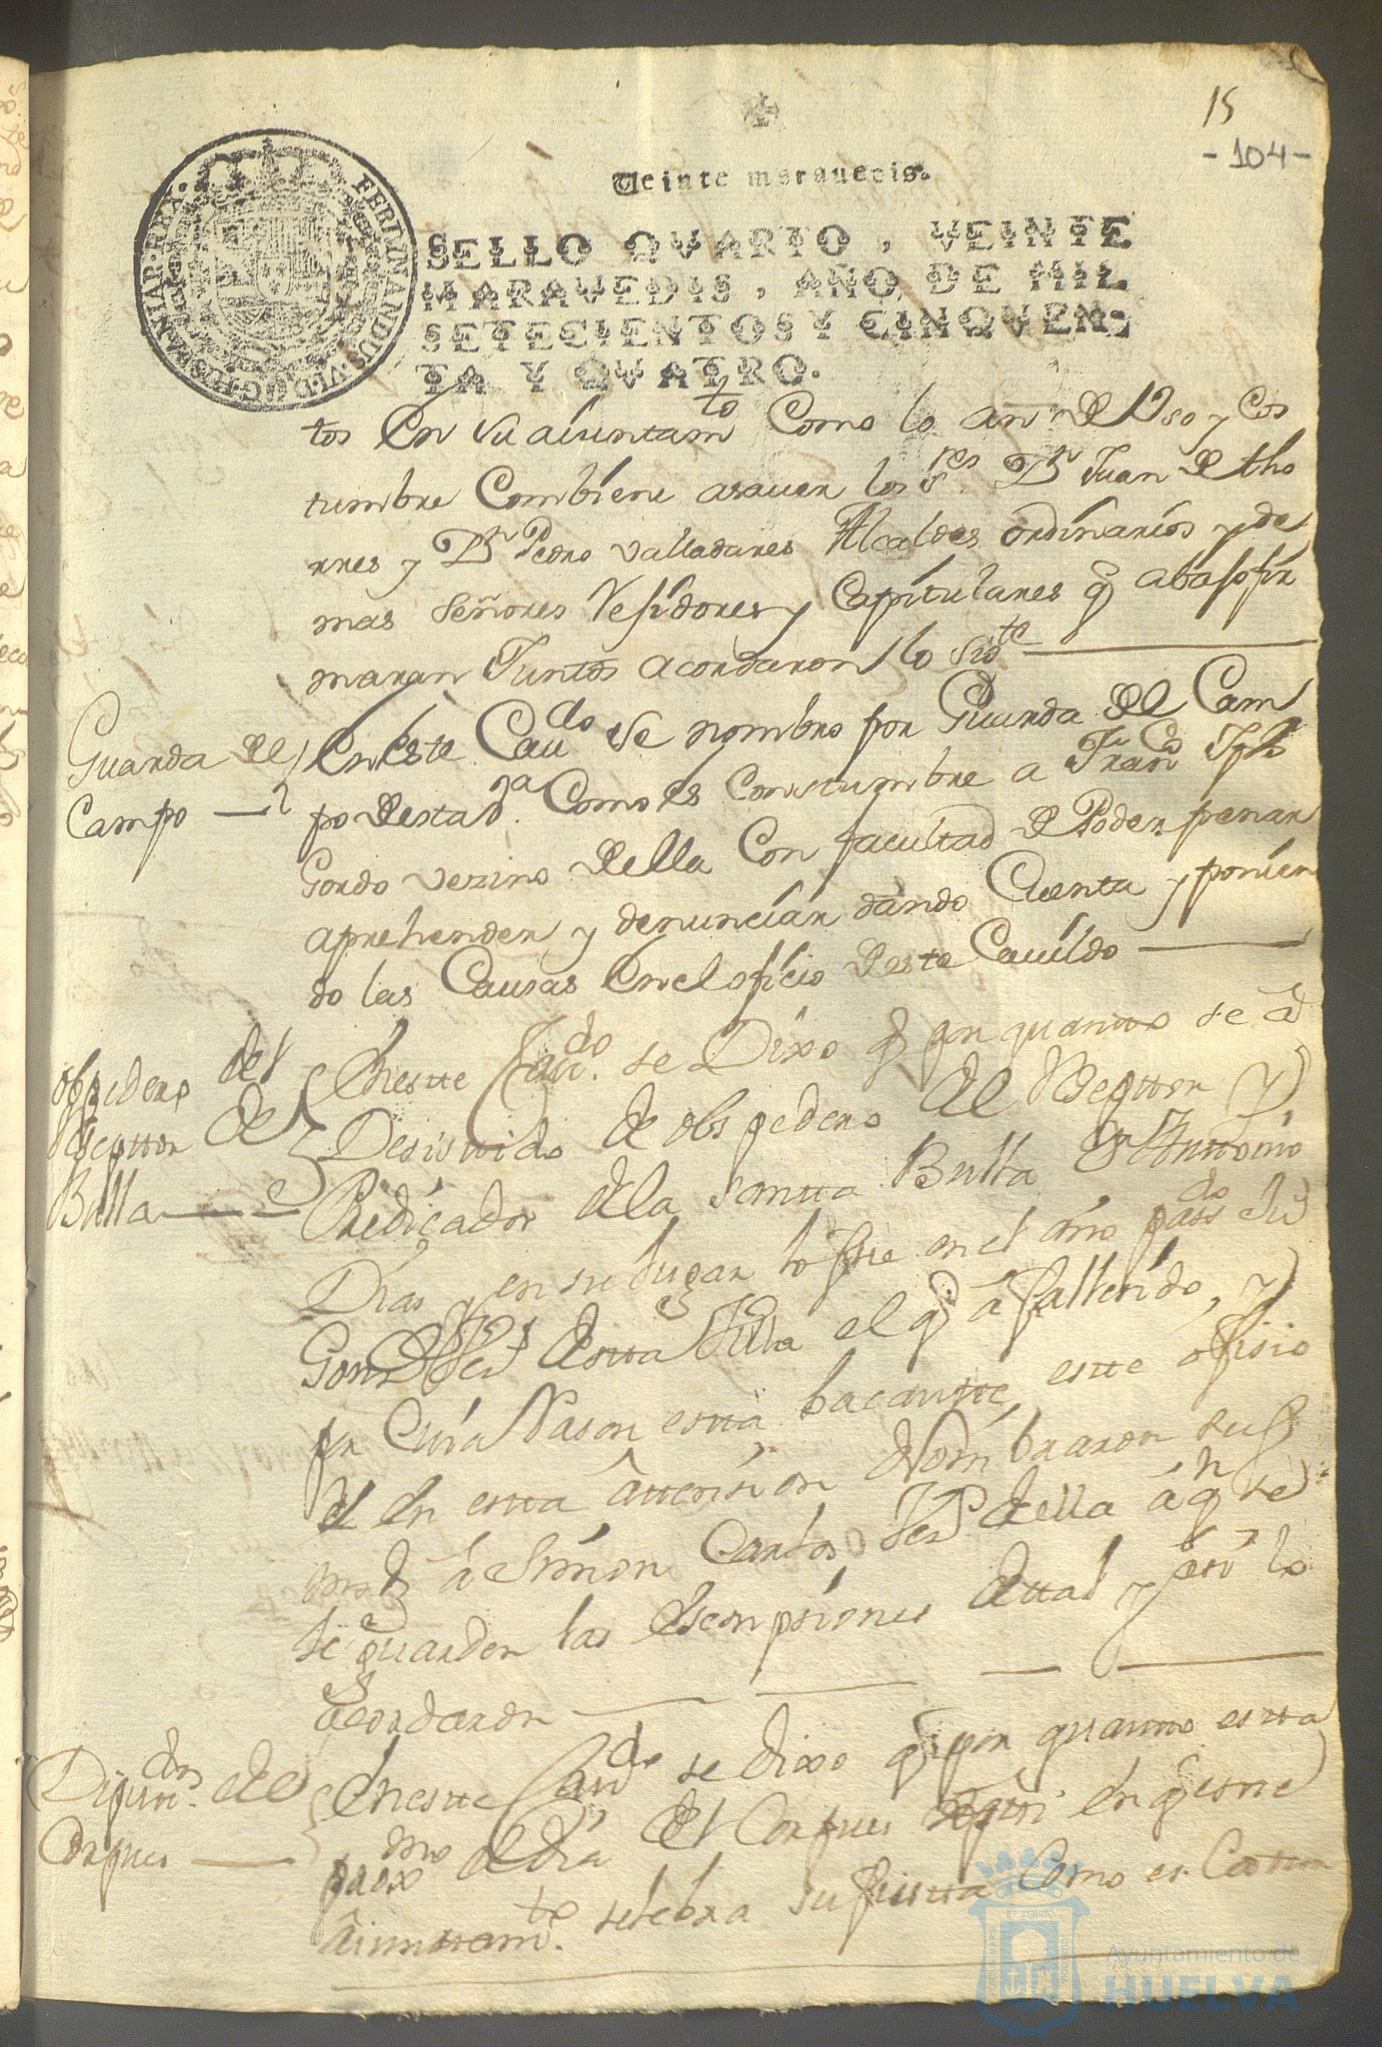 15
-104-
Veinte maravedis.
SELLO QVARTO, VEINTE
MARAVEDIS, AÑO DE MIL
SETECIENTOS Y CINQVEN-
TA Y QVATRO.
FERDINANDUS·VI·D·G·HISPANIAR·REX·
tos en su aiuntamto Como lo an de Uso y Cos
tumbre Combiene asauer los Sres Dn Juan de tho
rres y Dn Pedro Valladares Alcaldes ordinarios y de
mas señores Rexidores y Capitulares q abaxo fir
maran Juntos acordaron lo sigte
Guarda del
Campo
En este Caudo se nombro por Guarda del Cam
po desta va. Como es Constumbre a Franco
Gordo vezino della Con facultad de Poder penar
aprehender y denunciar dando Cuenta y ponien
do las Causas en el oficio deste Cauildo
obspedero del
Reseptor de
Bulla
Enestte Caudo. se Dixo q por quantto se a
Desistido de obspedero del Reseptor y
Predicador de la santta Bulla Dn Anttonio
Dias y en su lugar lo fue en el año pasdo
Gonz Vez destta Villa el q a fallesido, y
pr Cuia Rason estta bacantte estte ofisio
en estta attension Nombraron
a Simon Carlos Vezo della a qn se
le guarden las esempsiones y asi lo
acordaron
Diputdos de
Corpus
Enestte Caudo se dixo q por quantto estta
proxmo el dia del Corpus en q estte
aiunttamto. selebra su fiestta Como es Costtum
Ayuntamiento de
HUELVA